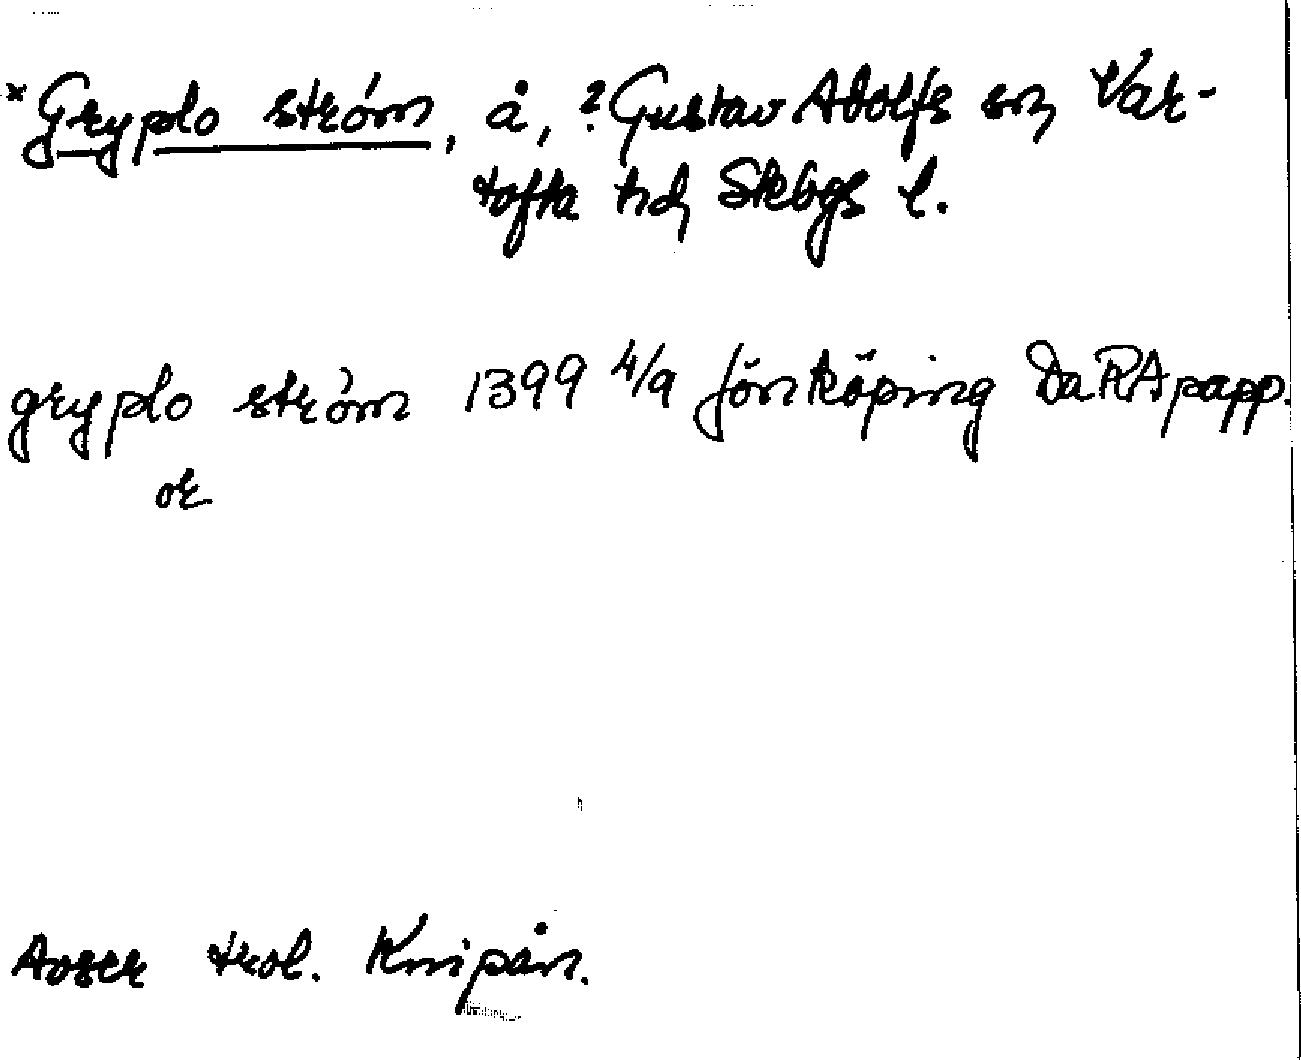 *Gryplo stróm, å, ? Gustav Adolfs sn, Var-
tofta hd, Skbgs l.
gryplo stróm 1399 4/9 Jönköping Da RA papp.
or
Avser trol. Knipån.